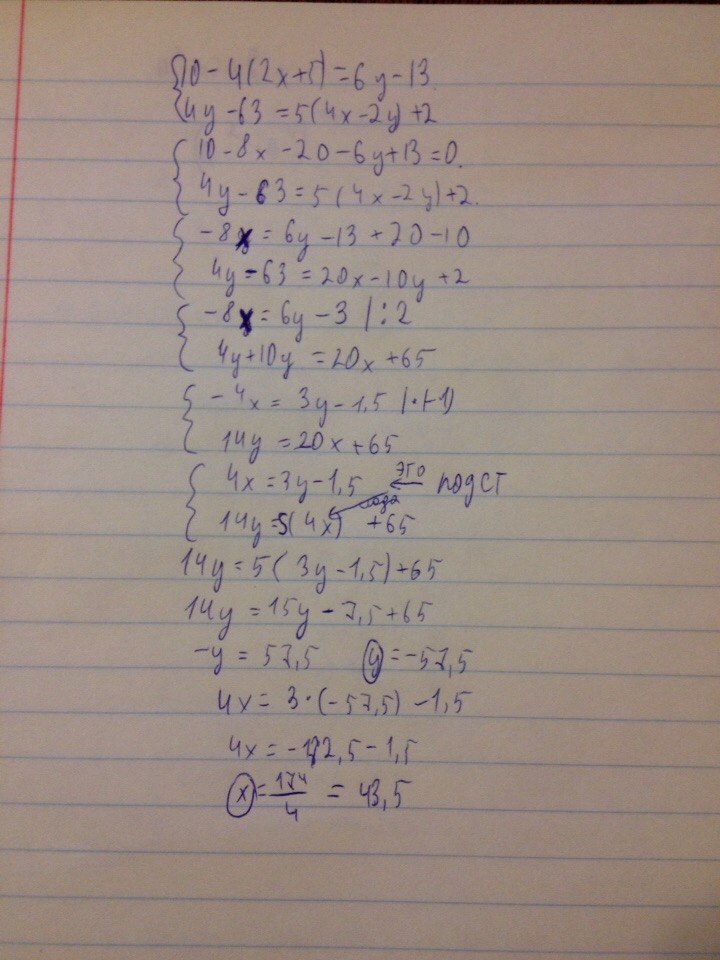 10 - 4(2x+5) = 6y - 13
4y - 63 = 5(4x - 2y) + 2
10 - 8x - 20 - 6y + 13 = 0.
4y - 63 = 5(4x - 2y) + 2.
-8x = 6y - 13 + 20 - 10
4y - 63 = 20x - 10y + 2
-8x = 6y - 3 | : 2
4y + 10y = 20x + 65
-4x = 3y - 1,5 | · (-1)
14y = 20x + 65
4x = 3y - 1,5 ← это подст
сюда
14y = 5(4x) + 65
14y = 5(3y - 1,5) + 65
14y = 15y - 7,5 + 65
-y = 57,5 y = -57,5
4x = 3 · (-57,5) - 1,5
4x = -172,5 - 1,5
x = 174/4 = 43,5